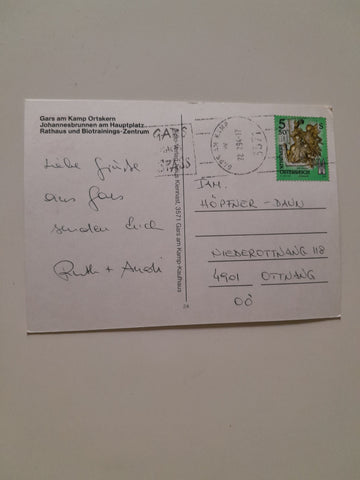 Gars am Kamp Ortskern
Johannesbrunnen am Hauptplatz
Rathaus und Biotrainings-Zentrum
Liebe Grüße
aus Gars
senden Euch
Ruth + Andi
Kiennast, 3571 Gars am Kamp-Kaufhaus
24
GARS
PASS
GARS AM KAMP
3571
5
50
S
ÖSTERREICH
FAM.
HÖPFNER - DAUN
NIEDEROTTNANG 118
4901 OTTNANG
OÖ